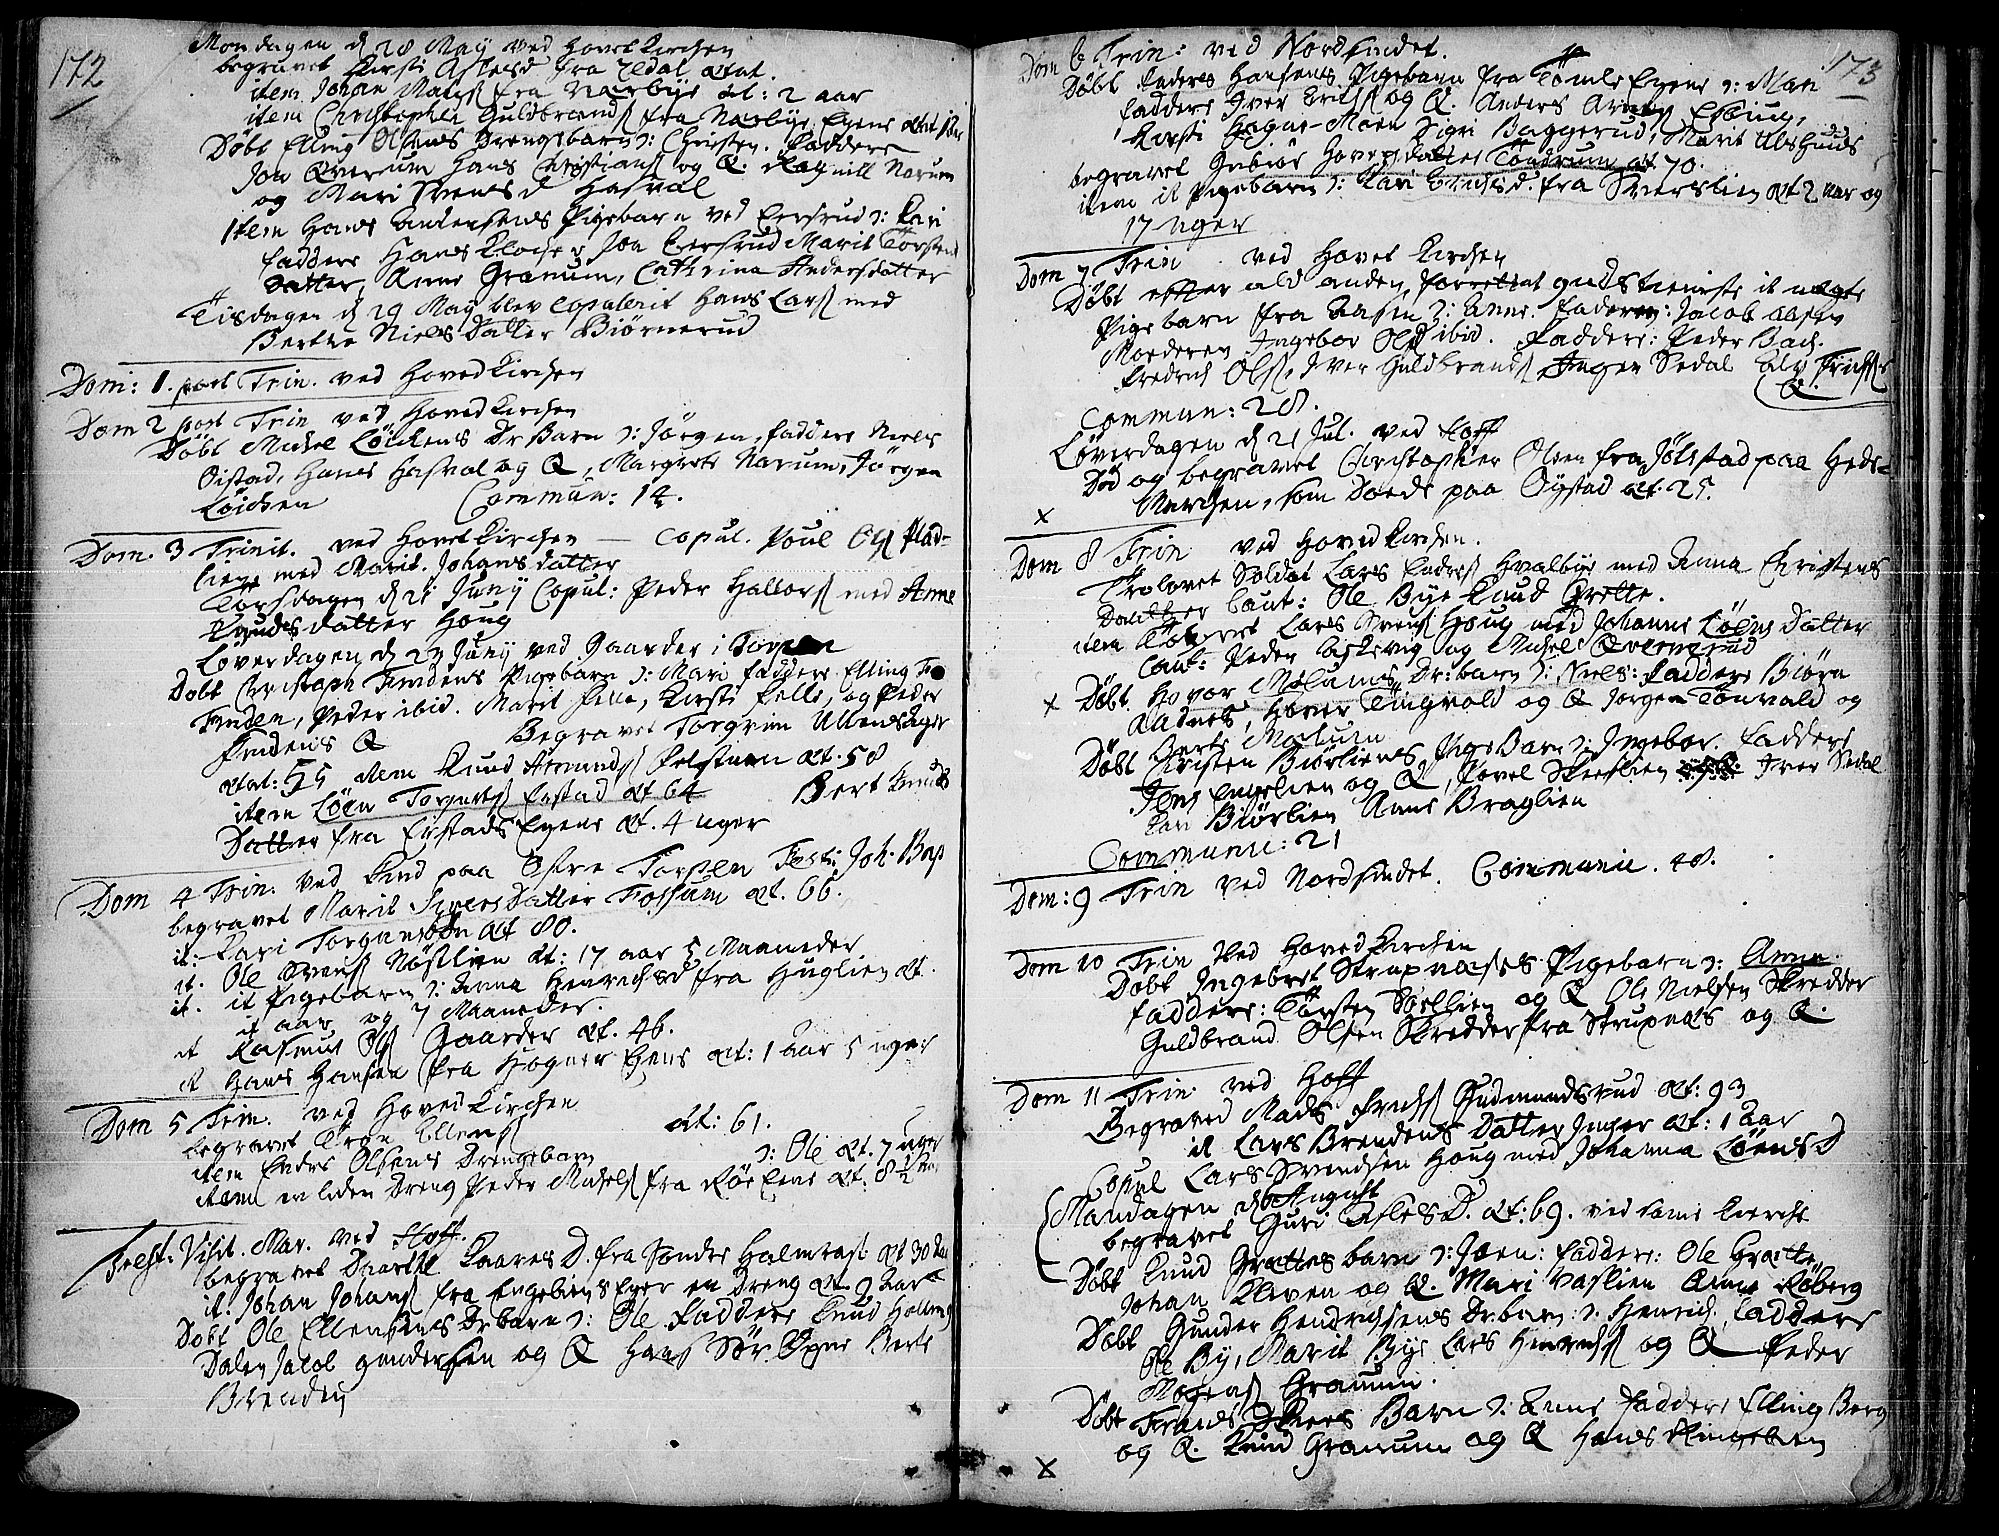 172
Mondagen d 28 May ved Hovet Kirchen
begravet Kirsti Aslesd fra Zedal ætat.
item Johan Madsſ fra Narbye æt: 2 aar
item Christopher Guldbrandsſ fra Narbye Egene ætat
Döbt Elling Olsens Drengebarn n: Christen. Faddere
Jon Qverum Hans Christiansſ og Q. Ragnill Narum
og Mari Svensd Hasval
Item Hans Andersens Pigebarn ved Eersrud n: Kari
faddere Hans Klocher Jon Eersrud Marit Torsten
Datter, Anne Granum, Cathrina Andersdatter
Tisdagen d 29 May blev Copulerit Hans Larsſ med
Berthe Niels Datter Biørnerud
Dom: 1. post Trin. ved Hoved Kirchen
Dom 2 post Trin ved Hoved Kirchen
Döbt Michel Löichens Dr Barn n: Jörgen, faddere Niels
Öistad, Hans Hasval og Q, Margrete Narum, Jörgen
Löichen Commun: 14.
Dom. 3 Trinit. ved Hovet Kirchen — Copul. Poul Olsſ Plad-
lien med Marit Johansdatter
Torsdagen d 21 Junij Copul: Peder Hallorsſ med Anne
Knudsdatter Houg
Löverdagen d 23 Junij ved Gaarder i Torpen
Döbt Christoph Findens Pigebarn n: Mari faddere Elling
Finden, Peder ibid. Marit Felle, Kirsti Felle, og Peder
Findens Q Begravet Torgrim Ullensager
ætat: 55 item Knud Amundsſ Felstuen æt. 58
item Löen Torgersſ Erstad æt 64 Bert Knuds
Datter fra Erstads Egene æt. 4 uger
Dom 4 Trin. ved Kind paa Østre Torpen Fest: Joh. Bap
begravet Marit Iversdatter Fossum æt. 66.
it. Kari Torgers æt 80.
it. Ole Svensſ Nöstlien æt: 17 aar 5 Maaneder
it. it Pigebarn n: Anna Henrichsd fra Huglien æt.
it aar og 7 Maaneder.
it Rasmus Olsſ Gaarder æt. 46.
it Hans Hansen fra Hogner Egene æt: 1 aar 5 uger
Dom 5 Trin. ved Hoved Kirchen
begravet Tron Ellensſ æt: 61.
item Endre Olsens Drengebarn n: Ole æt. 7 uger
item en liden Dreng Peder Michelsſ fra Röe Eene æt: 8½
Fest: Visit. Mar. ved Hoff.
begravet Kaaresd. fra Søndre Halmrast æt 30
it: Johan Johansſ fra Engeliens Eger en Dreng æt 9 aar
Döbt Ole Ellensens Dr barn n: Ole Faddere Knud
Dalen Jacob Gundersen og Q Hans Sör Ogne Berte
Brenden
173
Dom 6 Trin: ved Nordsindet.
Döbt Anders Hansens Pigebarn fra Tömle Egene n: Mari
faddere Iver Erichsſ og Q. Anders
Kirsti Hogne-Moen Sigri Baggerud, Marit
begravet Gubiör Hovelsdatter Töndrum æt 70.
item it Pigebarn n: Kari Erichsd. fra Sverslien æt 2 aar og
17 uger
Dom 7 Trin ved Hovet Kirchen
Döbt efter ald anden forrettet gudstieniste it uægte
Pige barn fra Aasen n: Anne. faderen: Jacob Aasen
Moderen Ingebor Olsd ibid. Faddere: Peder Bach.
Fredrich Olsſ, Iver Guldbrandsſ Inger Sedal
Q.
Commun: 28.
Löverdagen d 21 Jul. ved Hoff
Död og begravet Christopher Olsen fra Jölstad paa Hede-
Marchen, som Döde paa Öystad æt. 25.
x
Dom 8 Trin ved Hoved Kirchen.
Trolovet Soldat Lars Endresſ Hvalbye med Anna Christens
Daatter Caut: Ole Bye Knud Grette.
item Trolovet Lars Svensſ Houg med Johanne Löens Datter
Caut: Peder og Michel Qvernerud
x Döbt Hovor Melums Dr: barn n: Niels: Faddere Biörn
Aadnes, Hover Tingvold og Q Jorgen Tonvald og
Berte Melum
Döbt Christen Biörliens Pige Barn n: Ingebor. Faddere
Jens Engelien og Q, Povel Skeeslien Iver Sedal
Kari Biörlien Anne Braglien
Communic: 21
Dom: 9 Trin ved Nordsindet. Communic. 48.
Dom 10 Trin ved Hoved Kirchen
Döbt Ingebret Strupnæses Pigebarn n: Anne.
faddere: Torsten Söllien og Q Ole Nielsen Skredder
Guldbrand Olsen Skredder fra Strupnæs og Q.
Dom 11 Trin. ved Hoff
Begraved Mads Erichsſ Gudmundsrud æt: 93
it Lars Brendens Datter Inger æt: 1 aar
Copul Lars Svendsen Houg med Johanna Löensd
Mandagen d 6 August
begravet Guri Aslesd. æt: 69. ved samme Kierche
Döbt Knud Grettes barn n: Joen: faddere: Ole Grætte
Johan Kleven og Q. Mari Vaslien Anne Röberg
Döbt Gunder Hendrichsens Dr. barn: n: Henrich, faddere
Ole By, Marit Bye Lars Henrichsſ og Q Peder
Mogensſ Granum.
Döbt Frands Barn n: Anne faddere Elling Berg
og Q. Knud Granum og Q Hans Ringelien
x